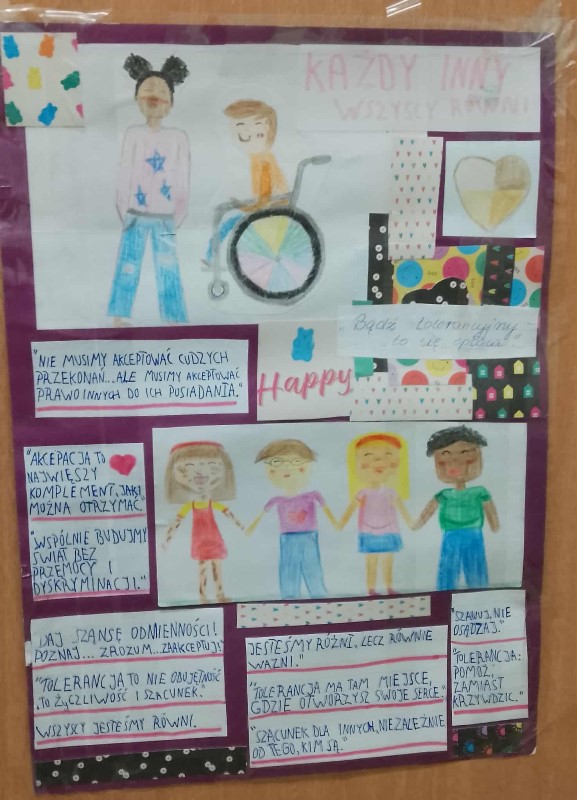 KAŻDY INNY
WSZYSCY RÓWNI
"Bądź tolerancyjny -
to się opłaca"
"NIE MUSIMY AKCEPTOWAĆ CUDZYCH
PRZEKONAŃ...ALE MUSIMY AKCEPTOWAĆ
PRAWO INNYCH DO ICH POSIADANIA."
Happy
"AKCEPACJA TO
NAJWIĘKSZY
KOMPLEMENT, JAKI
MOŻNA OTRZYMAĆ."
"WSPÓLNIE BUDUJMY
ŚWIAT BEZ
PRZEMOCY I
DYSKRYMINACJI."
DAJ SZANSĘ ODMIENNOŚCI!
POZNAJ... ZROZUM...ZAAKCEPTUJ!
"TOLERANCJA TO NIE OBOJĘTNOŚĆ
,TO ŻYCZLIWOŚĆ I SZACUNEK."
WSZYSCY JESTEŚMY RÓWNI.
JESTEŚMY RÓŻNI, LECZ RÓWNIE
WAŻNI."
"TOLERANCJA MA TAM MIEJSCE,
GDZIE OTWORZYSZ SWOJE SERCE."
"SZACUNEK DLA INNYCH,NIEZALEŻNIE
OD TEGO, KIM SĄ."
"SZANUJ, NIE
OSĄDZAJ."
"TOLERANCJA:
POMÓŻ,
ZAMIAST
KRZYWDZIĆ."